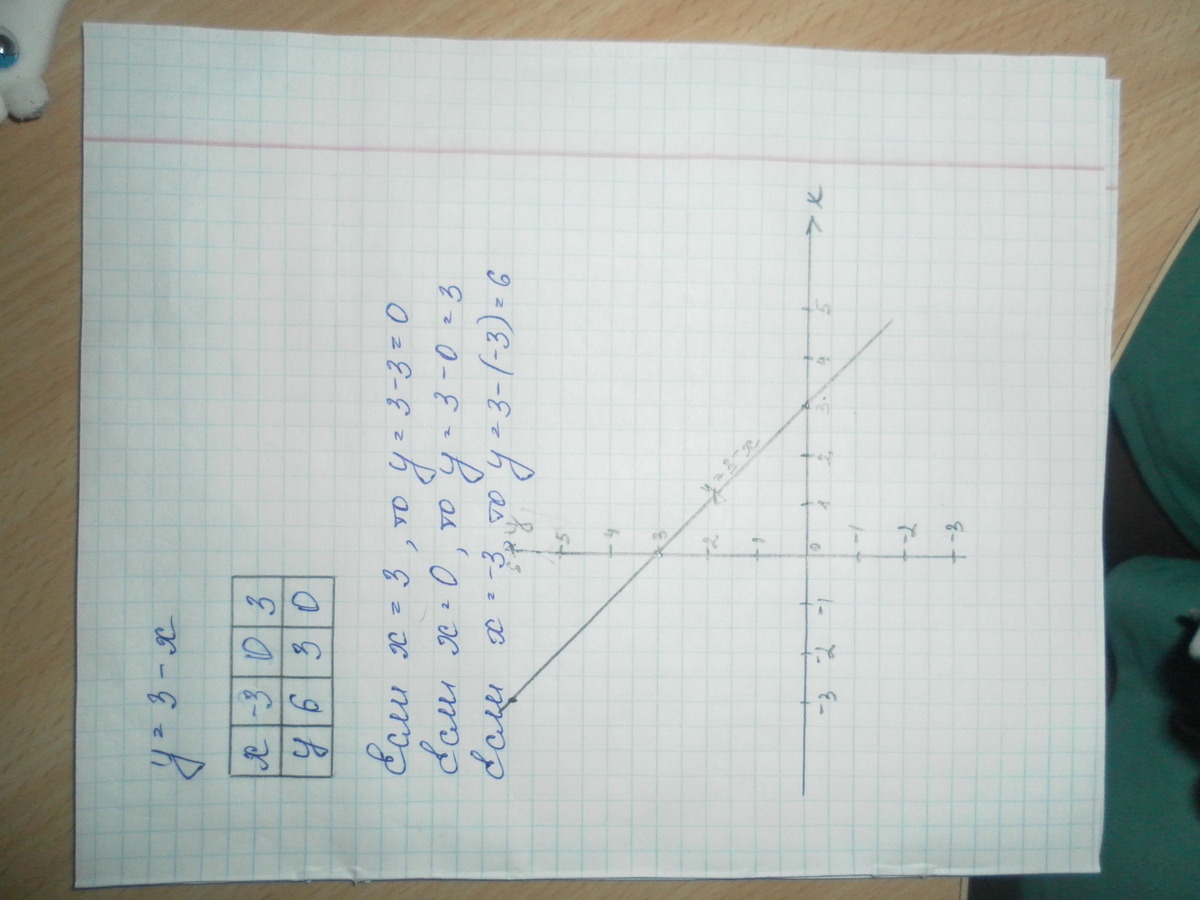 y = 3 - x
x -3 0 3
y 6 3 0
Если x = 3, то y = 3 - 3 = 0
Если x = 0, то y = 3 - 0 = 3
Если x = -3, то y = 3 - (-3) = 6
6 y
5
4
3
2
y = 3 - x
1
-3 -2 -1 0 1 2 3 4 5 x
-1
-2
-3